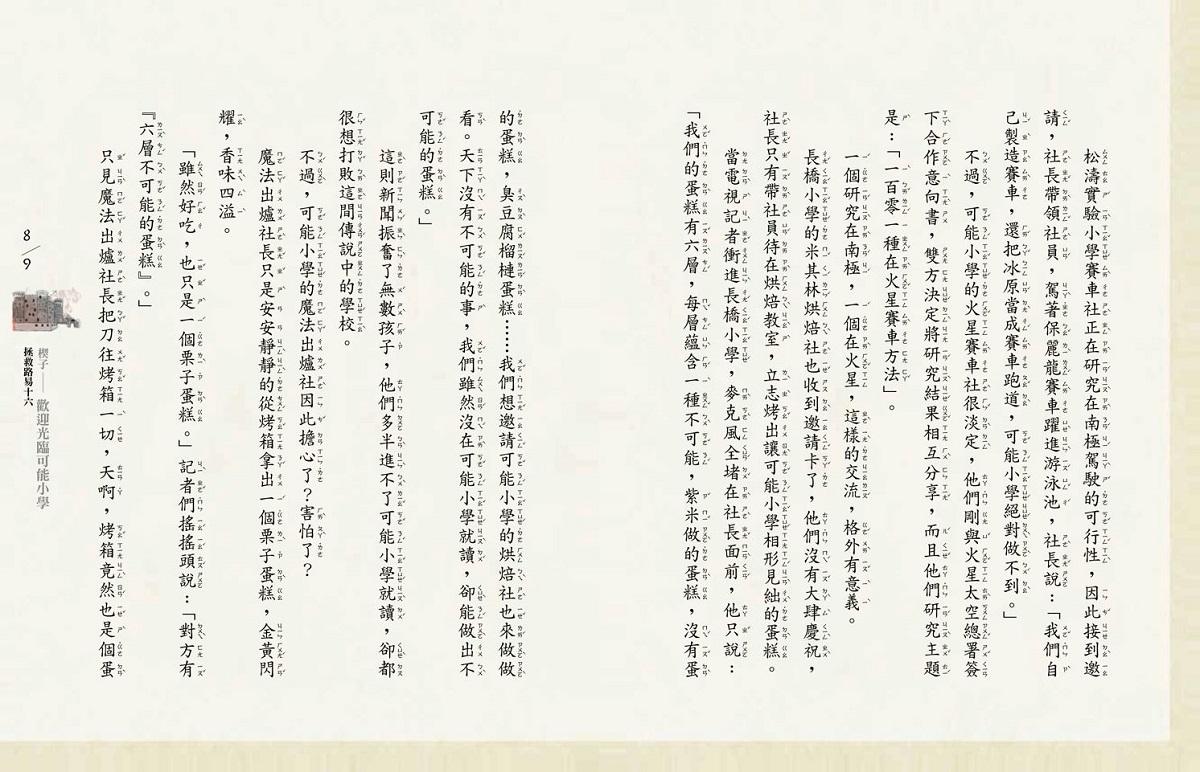 松濤實驗小學賽車社正在研究在南極駕駛的可行性，因此接到邀
請，社長帶領社員，駕著保麗龍賽車躍進游泳池，社長說：「我們自
己製造賽車，還把冰原當成賽車跑道，可能小學絕對做不到。」
不過，可能小學的火星賽車社很淡定，他們剛與火星太空總署簽
下合作意向書，雙方決定將研究結果相互分享，而且他們研究主題
是：「一百零一種在火星賽車方法」。
一個研究在南極，一個在火星，這樣的交流，格外有意義。
長橋小學的米其林烘焙社也收到邀請卡了，他們沒有大肆慶祝，
社長只有帶社員待在烘焙教室，立志烤出讓可能小學相形見絀的蛋糕。
當電視記者衝進長橋小學，麥克風全堵在社長面前，他只說：
「我們的蛋糕有六層，每層蘊含一種不可能，紫米做的蛋糕，沒有蛋
的蛋糕，臭豆腐榴槤蛋糕……我們想邀請可能小學的烘焙社也來做做
看。天下沒有不可能的事，我們雖然沒在可能小學就讀，卻能做出不
可能的蛋糕。」
這則新聞振奮了無數孩子，他們多半進不了可能小學就讀，卻都
很想打敗這間傳說中的學校。
不過，可能小學的魔法出爐社因此擔心了？害怕了？
魔法出爐社長只是安安靜靜的從烤箱拿出一個栗子蛋糕，金黃閃
耀，香味四溢。
「雖然好吃，也只是一個栗子蛋糕。」記者們搖搖頭說：「對方有
『六層不可能的蛋糕』。」
只見魔法出爐社長把刀往烤箱一切，天啊，烤箱竟然也是個蛋
8／9
楔子——歡迎光臨可能小學
拯救路易十六